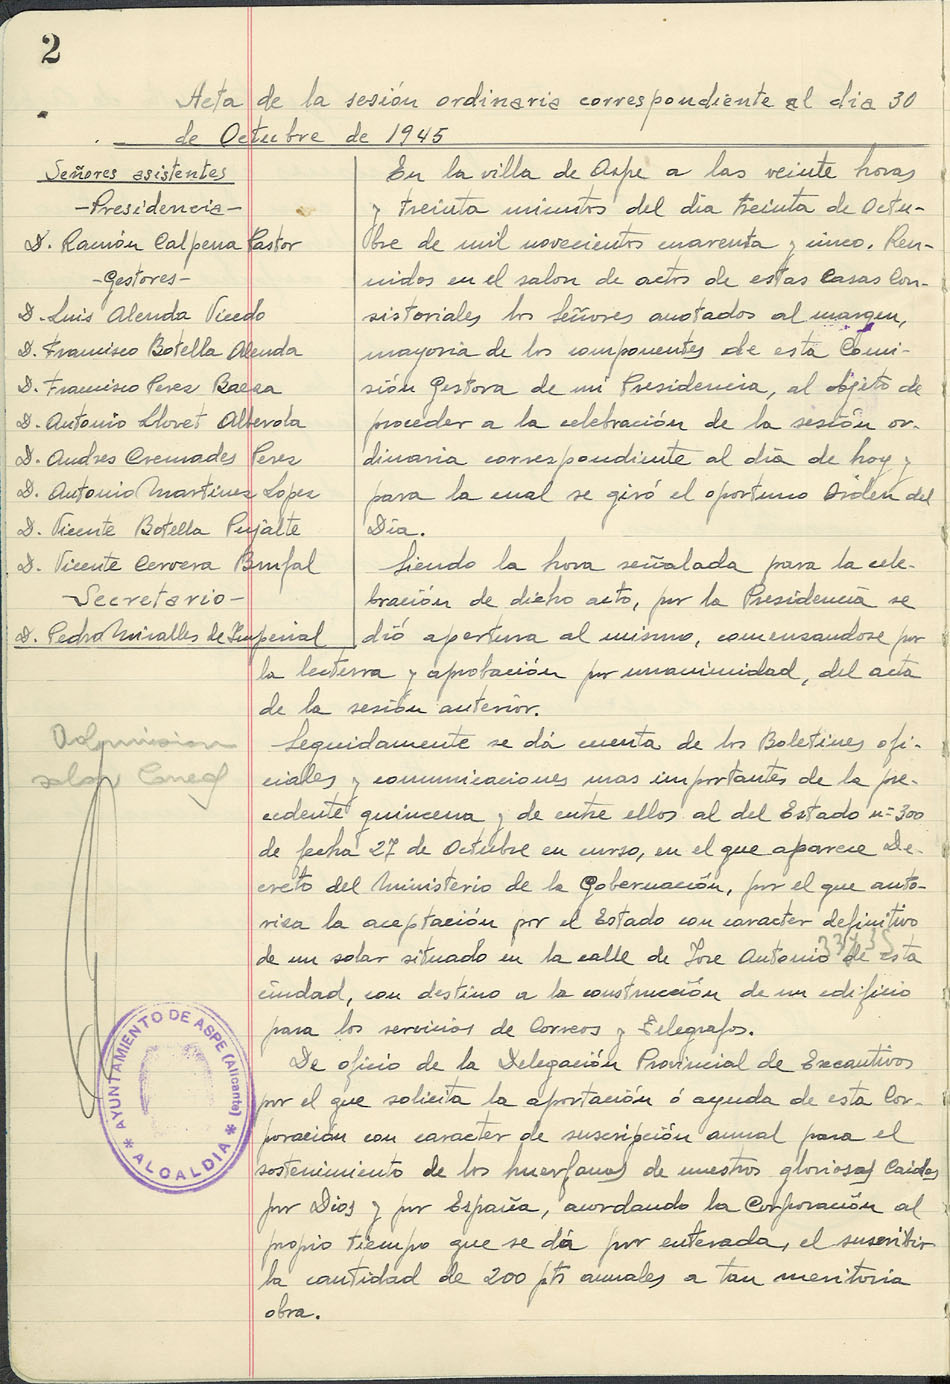 2
Acta de la sesión ordinaria correspondiente al dia 30
de Octubre de 1945
Señores asistentes
-Presidencia-
D. Ramón Calpena Pastor
-Gestores-
D. Luis Alenda Vicedo
D. Francisco Botella Alenda
D. Francisco Perez Baeza
D. Antonio Llovet Alberola
D. Andres Cremades Perez
D. Antonio Martinez Lopez
D. Vicente Botella Pujalte
D. Vicente Cervera Brufal
-Secretario-
D. Pedro Miralles de Imperial
En la villa de Aspe a las veinte horas
y treinta minutos del dia treinta de Octu-
bre de mil novecientos cuarenta y cinco. Reu-
nidos en el salon de actos de estas Casas Con-
sistoriales los Señores anotados al margen,
mayoria de los componentes de esta Comi-
sión Gestora de mi Presidencia, al objeto de
proceder a la celebración de la sesión or-
dinaria correspondiente al dia de hoy y
para la cual se giró el oportuno Orden del
Dia.
Siendo la hora señalada para la cele-
bración de dicho acto, por la Presidencia se
dió apertura al mismo, comensandose por
la lectura y aprobación por unanimidad, del acta
de la sesión anterior.
Seguidamente se dá cuenta de los Boletines ofi-
ciales y comunicaciones mas importantes de la pre-
cedente quincena y de entre ellos al del Estado nº 300
de fecha 27 de Octubre en curso, en el que aparece De-
creto del Ministerio de la Gobernación, por el que auto-
riza la aceptación por el Estado con caracter definitivo
de un solar situado en la calle de Jose Antonio de esta
ciudad, con destino a la construcción de un edificio
para los servicios de Correos y Telegrafos.
De oficio de la Delegación Provincial de Excautivos
por el que solicita la aportación ó ayuda de esta Cor-
poración con caracter de suscripción anual para el
sostenimiento de los huerfanos de nuestros gloriosos Caidos
por Dios y por España, acordando la Corporación al
propio tiempo que se dá por enterada, el suscribir
la cantidad de 200 pts anuales a tan meritoria
obra.
solar
AYUNTAMIENTO DE ASPE (Alicante)
* ALCALDIA *